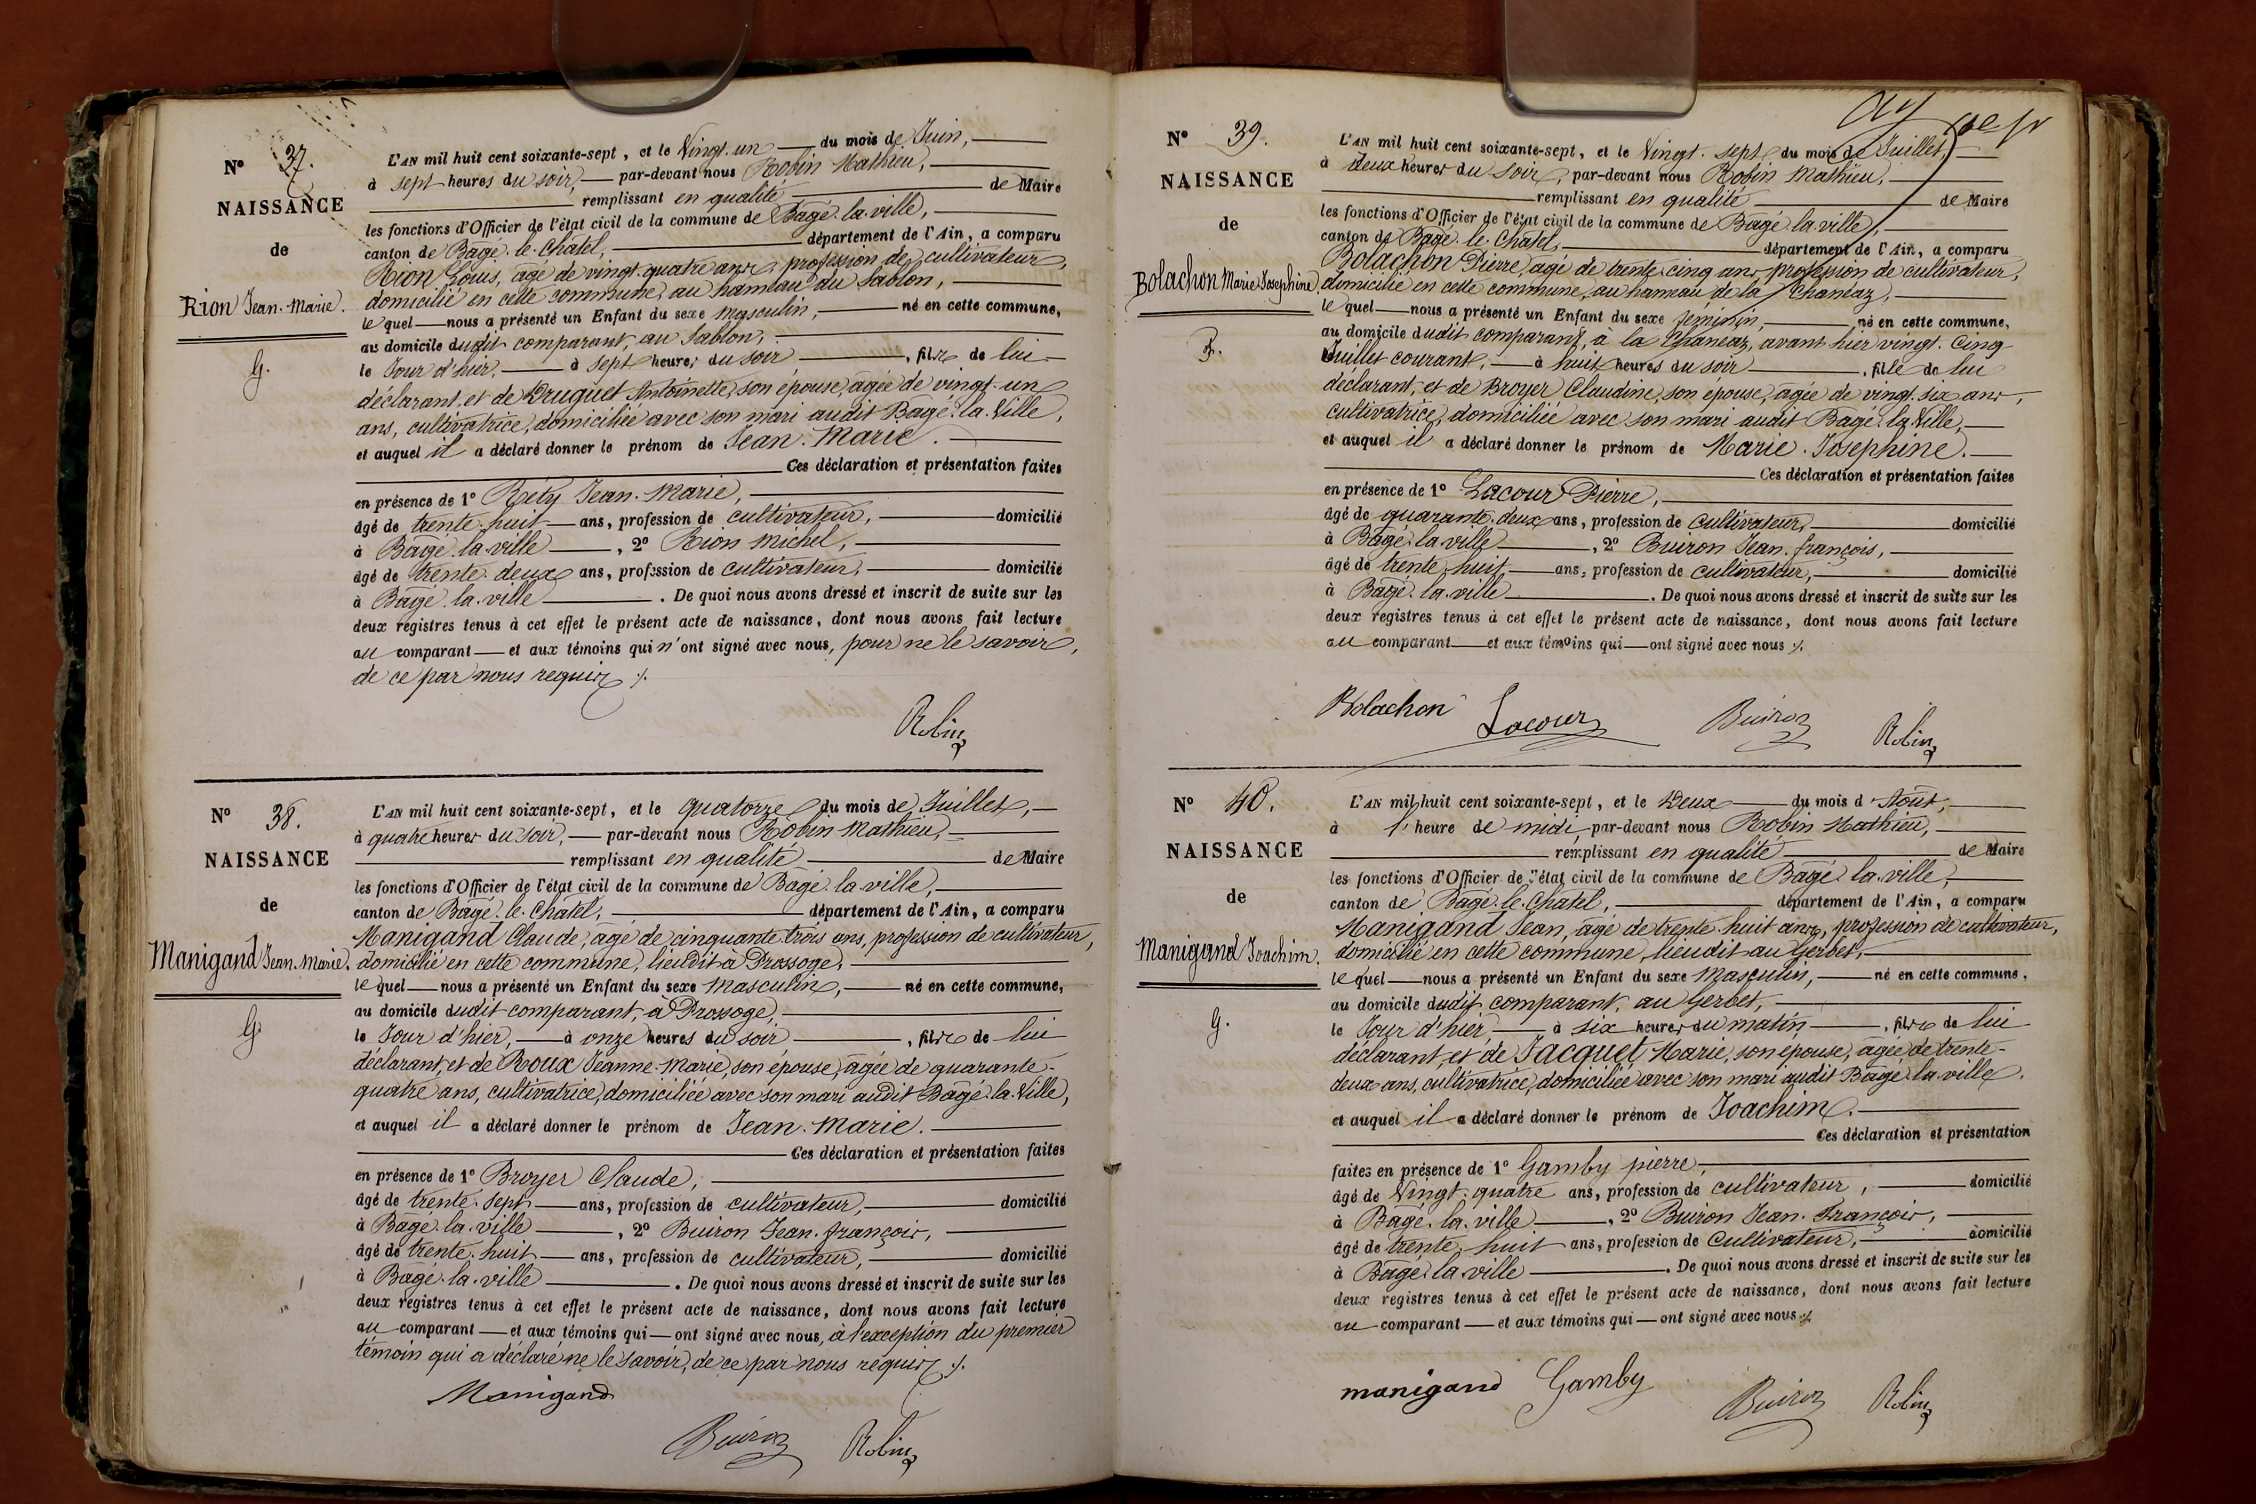 N° 37.
NAISSANCE
de
Rion Jean-Marie.
G.
L'AN mil huit cent soixante-sept, et le Vingt-un du mois de Juin,
à sept heures du soir, par-devant nous Robin Mathieu,
remplissant en qualité de Maire
les fonctions d'Officier de l'état civil de la commune de Bâgé-la-ville,
canton de Bâgé-le-Châtel, département de l'Ain, a comparu
Rion Louis, âgé de vingt-quatre ans, profession de cultivateur,
domicilié en cette commune, au hameau du Sablon,
lequel nous a présenté un Enfant du sexe masculin, né en cette commune,
au domicile dudit comparant, au Sablon,
le Jour d'hier, à sept heures du soir, fils de lui
déclarant, et de Druguet Antoinette, son épouse, âgée de vingt-un
ans, cultivatrice, domiciliée avec son mari audit Bâgé-la-Ville,
et auquel il a déclaré donner le prénom de Jean-Marie.
Ces déclaration et présentation faites
en présence de 1° Réty Jean-Marie,
âgé de trente-huit ans, profession de cultivateur, domicilié
à Bâgé-la-ville, 2° Rion Michel,
âgé de trente-deux ans, profession de cultivateur, domicilié
à Bâgé-la-ville. De quoi nous avons dressé et inscrit de suite sur les
deux registres tenus à cet effet le présent acte de naissance, dont nous avons fait lecture
au comparant et aux témoins qui n'ont signé avec nous, pour ne le savoir,
de ce par nous requis ./.
Robin
N° 38.
NAISSANCE
de
Manigand Jean-Marie.
G.
L'AN mil huit cent soixante-sept, et le quatorze du mois de Juillet,
à quatre heures du soir, par-devant nous Robin Mathieu,
remplissant en qualité de Maire
les fonctions d'Officier de l'état civil de la commune de Bâgé-la-ville,
canton de Bâgé-le-Châtel, département de l'Ain, a comparu
Manigand Claude, âgé de cinquante-trois ans, profession de cultivateur,
domicilié en cette commune, lieudit à Brossoge,
lequel nous a présenté un Enfant du sexe masculin, né en cette commune,
au domicile dudit comparant, à Brossoge,
le Jour d'hier, à onze heures du soir, fils de lui
déclarant, et de Roux Jeanne-Marie, son épouse, âgée de quarante-
quatre ans, cultivatrice, domiciliée avec son mari audit Bâgé-la-Ville,
et auquel il a déclaré donner le prénom de Jean-Marie.
Ces déclaration et présentation faites
en présence de 1° Broyer Claude,
âgé de trente-sept ans, profession de cultivateur, domicilié
à Bâgé-la-ville, 2° Buiron Jean-françois,
âgé de trente-huit ans, profession de cultivateur, domicilié
à Bâgé-la-ville. De quoi nous avons dressé et inscrit de suite sur les
deux registres tenus à cet effet le présent acte de naissance, dont nous avons fait lecture
au comparant et aux témoins qui ont signé avec nous, à l'exception du premier
témoin qui a déclaré ne le savoir, de ce par nous requis ./.
Manigand
Buiron Robin
N° 39.
NAISSANCE
de
Bolachon Marie Josephine.
F.
L'AN mil huit cent soixante-sept, et le Vingt-sept du mois de Juillet,
à deux heures du soir, par-devant nous Robin Mathieu,
remplissant en qualité de Maire
les fonctions d'Officier de l'état civil de la commune de Bâgé-la-ville,
canton de Bâgé-le-Châtel, département de l'Ain, a comparu
Bolachon Pierre, âgé de trente-cinq ans, profession de cultivateur,
domicilié en cette commune, au hameau de la Chanéaz,
lequel nous a présenté un Enfant du sexe féminin, né en cette commune,
au domicile dudit comparant, à la Chanéaz, avant hier vingt-cinq
Juillet courant, à huit heures du soir, fille de lui
déclarant, et de Broyer Claudine, son épouse, âgée de vingt-six ans,
cultivatrice, domiciliée avec son mari audit Bâgé-la-Ville,
et auquel il a déclaré donner le prénom de Marie-Josephine.
Ces déclaration et présentation faites
en présence de 1° Lacour Pierre,
âgé de quarante-deux ans, profession de cultivateur, domicilié
à Bâgé-la-ville, 2° Buiron Jean-françois,
âgé de trente-huit ans, profession de cultivateur, domicilié
à Bâgé-la-ville. De quoi nous avons dressé et inscrit de suite sur les
deux registres tenus à cet effet le présent acte de naissance, dont nous avons fait lecture
au comparant et aux témoins qui ont signé avec nous ./.
Bolachon Lacour Buiron Robin
N° 40.
NAISSANCE
de
Manigand Joachim.
G.
L'AN mil huit cent soixante-sept, et le Deux du mois d'Août,
à l'heure de midi, par-devant nous Robin Mathieu,
remplissant en qualité de Maire
les fonctions d'Officier de l'état civil de la commune de Bâgé-la-ville,
canton de Bâgé-le-Châtel, département de l'Ain, a comparu
Manigand Jean, âgé de trente-huit ans, profession de cultivateur,
domicilié en cette commune, lieudit au Gerbet,
lequel nous a présenté un Enfant du sexe Masculin, né en cette commune,
au domicile dudit comparant, au Gerbet,
le Jour d'hier, à six heures du matin, fils de lui
déclarant, et de Jacquet Marie, son épouse, âgée de trente-
deux ans, cultivatrice, domiciliée avec son mari audit Bâgé-la-ville.
et auquel il a déclaré donner le prénom de Joachim.
Ces déclaration et présentation
faites en présence de 1° Gamby pierre,
âgé de Vingt-quatre ans, profession de cultivateur, domicilié
à Bâgé-la-ville, 2° Buiron Jean-François,
âgé de trente-huit ans, profession de cultivateur, domicilié
à Bâgé-la-ville. De quoi nous avons dressé et inscrit de suite sur les
deux registres tenus à cet effet le présent acte de naissance, dont nous avons fait lecture
au comparant et aux témoins qui ont signé avec nous ./.
manigand Gamby Buiron Robin